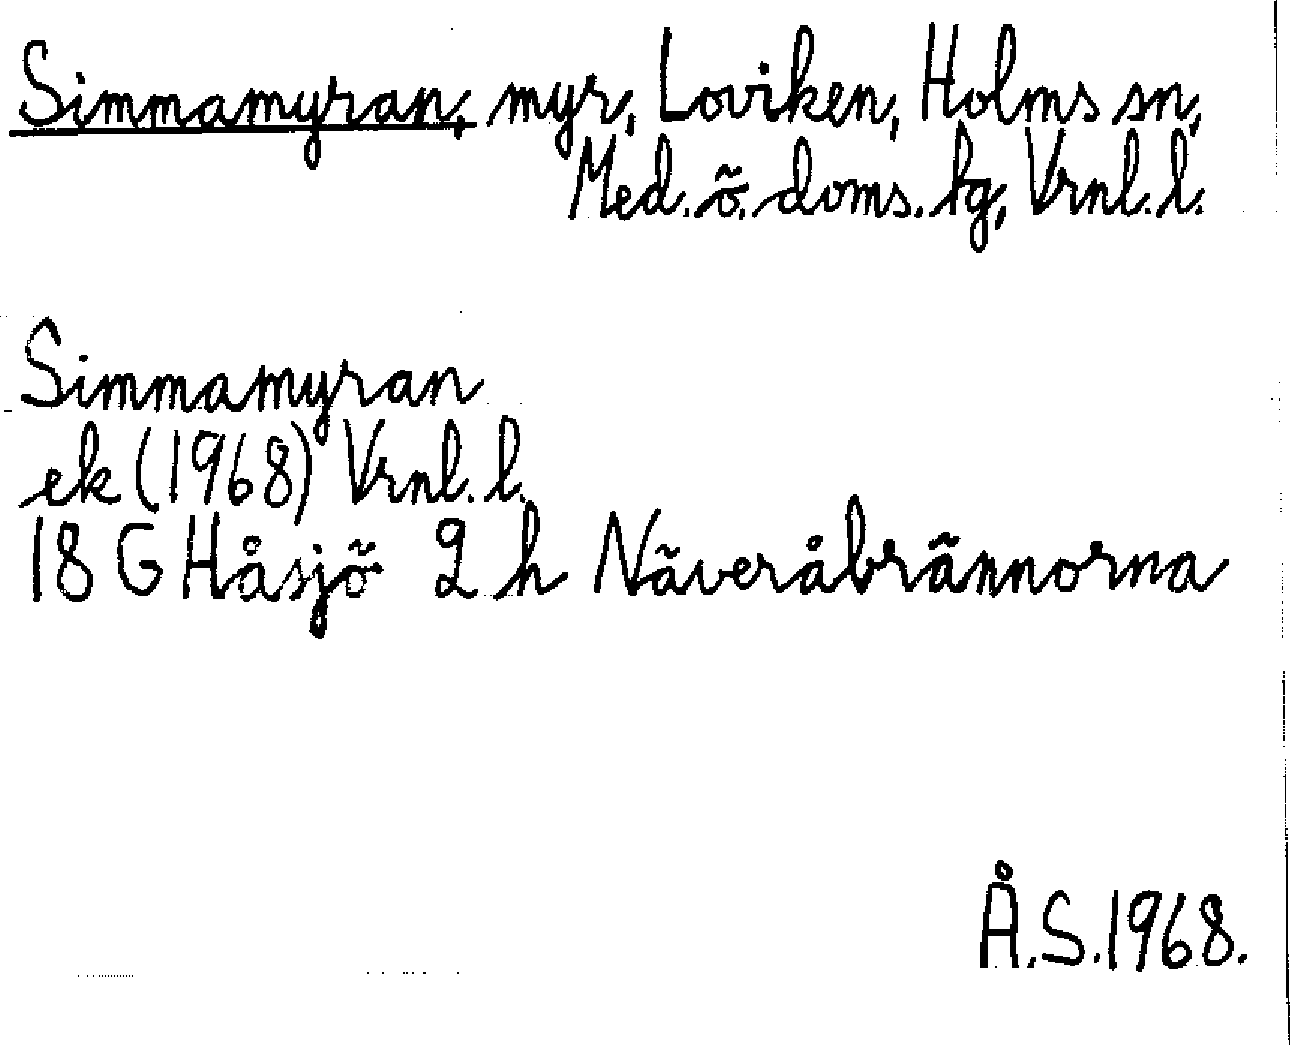 Simmamyran, myr, Loviken, Holms sn,
Med. ö. doms. tg, Vrnl. l.
Simmamyran
ek (1968) Vrnl. l.
18 G Håsjö 2 h Näveråbrännorna
Å.S. 1968.